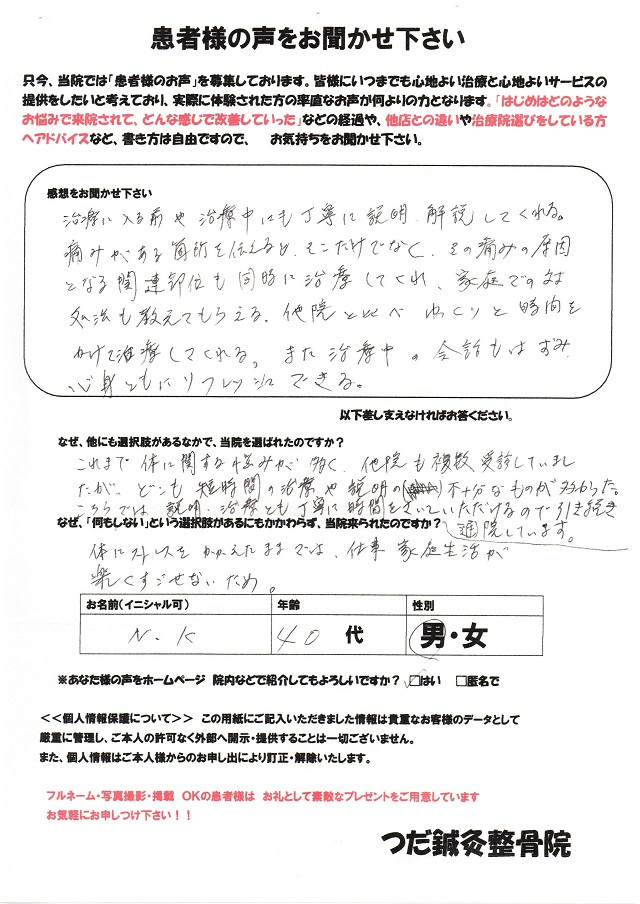 患者様の声をお聞かせ下さい
只今、当院では「患者様のお声」を募集しております。皆様にいつまでも心地よい治療と心地よいサービスの
提供をしたいと考えており、実際に体験された方の率直なお声が何よりの力となります。「はじめはどのような
お悩みで来院されて、どんな感じで改善していった」などの経過や、他店との違いや治療院選びをしている方
へアドバイスなど、書き方は自由ですので、　お気持ちをお聞かせ下さい。
感想をお聞かせ下さい
治療に入る前や治療中にも丁寧に説明、解説してくれる。
痛みがある箇所を伝えると、そこだけでなく、その痛みの原因
となる関連部位も同時に治療してくれ、家庭での対
処法も教えてもらえる。他院と比べ ゆっくりと時間を
かけて治療してくれる。また治療中の会話もはずみ
心身ともにリフレッシュできる。
以下差し支えなければお答ください。
なぜ、他にも選択肢があるなかで、当院を選ばれたのですか？
これまで体に関する悩みが多く、他院も複数受診していまし
たが、どこも短時間の治療や説明の不十分なものが多かった。
こちらでは、説明、治療とも丁寧に時間をさいていただけるので引き続き
なぜ、「何もしない」という選択肢があるにもかかわらず、当院来られたのですか？
通院しています。
体にストレスをかかえたままでは、仕事 家庭生活が
楽しくすごせないため。
お名前（イニシャル可） 年齢 性別
N.K 40 代 男・女
※あなた様の声をホームページ 院内などで紹介してもよろしいですか？ □はい □匿名で
＜＜個人情報保護について＞＞ この用紙にご記入いただきました情報は貴重なお客様のデータとして
厳重に管理し、ご本人の許可なく外部へ開示・提供することは一切ございません。
また、個人情報はご本人様からのお申し出により訂正・解除いたします。
フルネーム・写真撮影・掲載 OKの患者様は お礼として素敵なプレゼントをご用意しています
お気軽にお申しつけ下さい！！
つだ鍼灸整骨院